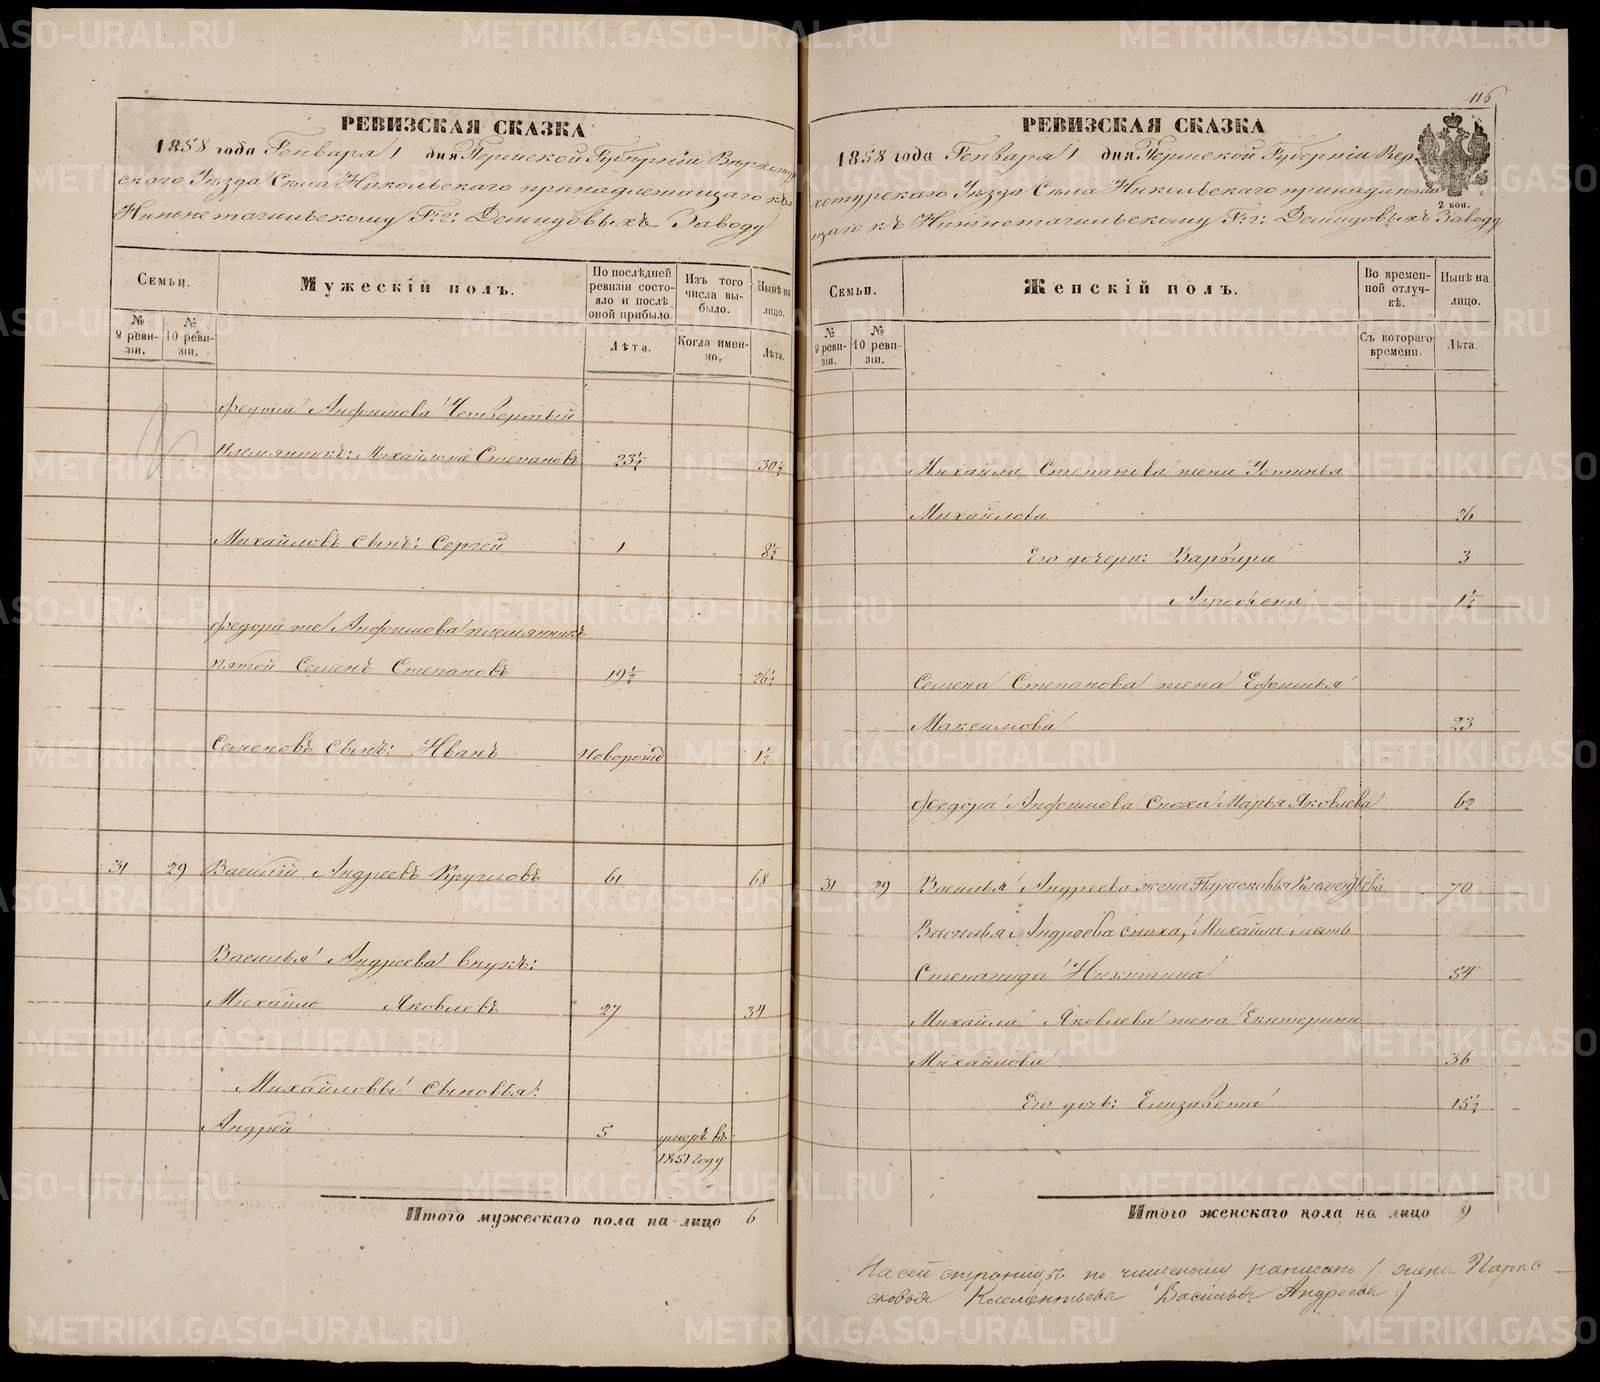 РЕВИЗСКАЯ СКАЗКА
1858 года Генваря 1 дня Пермской Губерніи Верхотур
скаго Уѣзда Села Никольскаго принадлежащаго къ
Нижнетагильскому Г.г: Демидовыхъ Заводу
Семьи.
Мужескій полъ.
По послѣдней ревизіи состояло и послѣ оной прибыло.
Изъ того числа выбыло.
Нынѣ на лицо.
№ 9 ревизіи.
№ 10 ревизіи.
Лѣта.
Когда именно.
Лѣта.
Федора Анфимова Четвертый
племянникъ: Михайло Степановъ 23½ 30½
Михайловъ сынъ: Сергей 1 8½
Федора же Анфимова племянникъ
пятой Семенъ Степановъ 19½ 26½
Семеновъ сынъ: Иванъ Новорожд 1½
31 29 Василій Андреевъ Кругловъ 61 68
Василья Андреева внукъ:
Михайло Яковлевъ 27 34
Михайловы сыновья:
Андрей 5 умеръ въ
1851 году
Итого мужескаго пола на-лицо 6
116
РЕВИЗСКАЯ СКАЗКА
1858 года Генваря 1 дня Пермской Губерніи Вер-
хотурскаго Уѣзда Села Никольскаго принадлежа
щаго къ Нижнетагильскому Г.г: Демидовыхъ Заводу
2 коп.
Семьи.
Женскій полъ.
Во временной отлучкѣ.
Нынѣ на лицо.
№ 9 ревизіи.
№ 10 ревизіи.
Съ котораго времени.
Лѣта.
Михайла Степанова жена Устинья
Михайлова 26
Его дочери: Варвара 3
Агрофена 1½
Семена Степанова жена Ефимья
Максимова 23
Федора Анфимова сноха Марья Яковлева 62
31 29 Василья Андреева жена Парасковья Клементьева 70
Василья Андреева сноха, Михайла мать
Степанида Никитина 54
Михайла Яковлева жена Екатерина
Михайлова 36
Его дочь: Елизавета 15½
Итого женскаго пола на лицо 9
На сей страницѣ по чищеному написано / жена Парас-
ковья Клементьева Василья Андреева /
METRIKI.GASO-URAL.RU